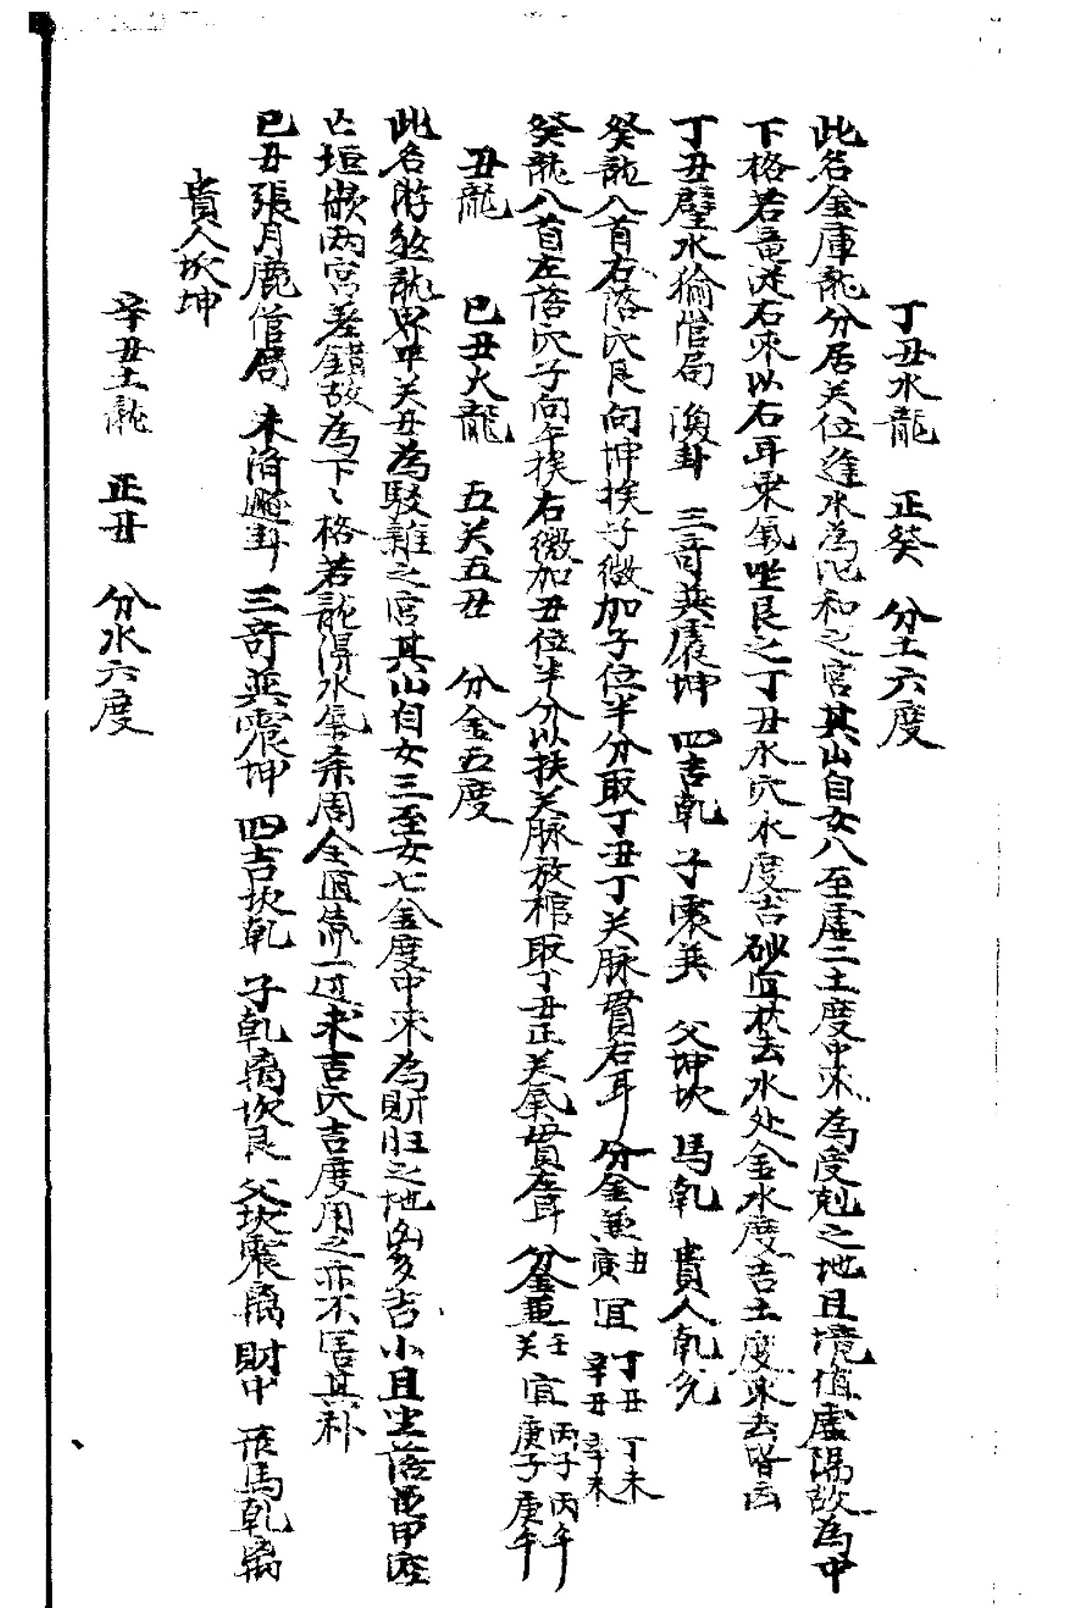 丁丑水龍 正癸 分土六度
此名金庫龍分居关位進水為和之宮其山自女八至虛二土度中來為受剋之地且境值虛陽故為中
下格若竜從右來以右耳乘氣坐艮之丁丑水穴水度吉砂宜扶去水处金水度吉土度來去皆凶
丁丑壁水㺄官局 渙卦 三奇巽震坤 四吉乾 子震巽 父坤坎 馬乾 貴人乾兌
癸龍八首右落穴艮向坤挨子微加子位半分取丁丑丁关脉貫右耳 分金兼丑寅宜丁丑丁未辛丑辛未
癸龍八首左落穴子向午挨右微加丑位半分以扶关脉放棺取丁丑正关氣貫左耳 分金兼壬关宜丙子丙午庚子庚午
丑龍 巳丑火龍 五关五丑 分金五度
此名將煞龍界平关丑為駁雜之宮其山自女三至女七金度中來為財旺之地多吉小且坐落
亡垣嶽两宮差錯故為下下格若龍得水氣周全穴吉度用之亦不害其
巳丑張月鹿官局 未濟卦 三奇巽震坤 四吉坎乾 子乾离坎艮 父坎震离 財中 馬乾离
貴人坎坤
辛丑土龍 正丑 分水六度